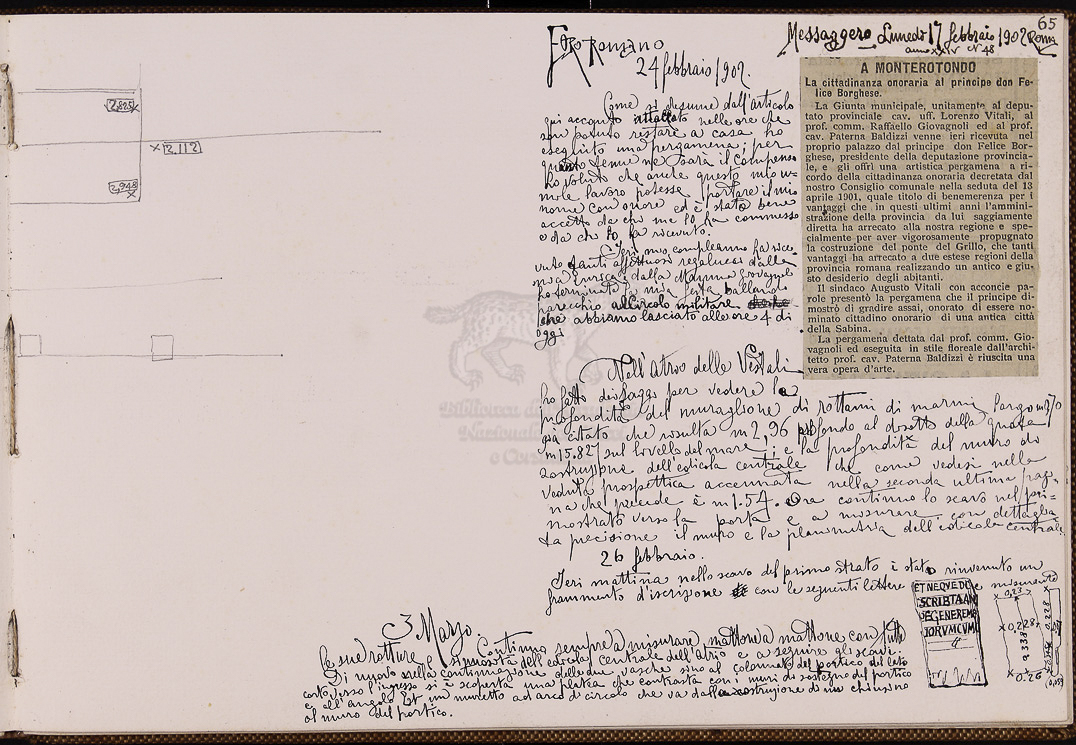 65
2,825
2.112
2,948
Foro Romano
24 febbraio 1902.
Come si desume dall'articolo
qui accanto attaccato nelle ore che
son potuto restare a casa ho
eseguito una pergamena; per
quanto tenue ne sarà il compenso
ho voluto che anche questo mio u-
mile lavoro potesse portare il mio
nome con onore ed è stato bene
accetto da chi me lo ha commesso
e da chi lo ha ricevuto.
Ieri mio compleanno ho rice
vuto tanti affettuosi regalucci dalla
mia Enrica e dalla Mamma
ho terminato la mia festa ballando
parecchio al Circolo militare
che abbiamo lasciato alle ore 4 di
oggi
Messaggero Lunedì 17 febbraio 1902 Roma
anno XXIV N° 48
A MONTEROTONDO
La cittadinanza onoraria al principe don Fe-
lice Borghese.
La Giunta municipale, unitamente al depu-
tato provinciale cav. uff. Lorenzo Vitali, al
prof. comm. Raffaello Giovagnoli ed al prof.
cav. Paterna Baldizzi venne ieri ricevuta nel
proprio palazzo dal principe don Felice Bor-
ghese, presidente della deputazione provincia-
le, e gli offrì una artistica pergamena a ri-
cordo della cittadinanza onoraria decretata dal
nostro Consiglio comunale nella seduta del 13
aprile 1901, quale titolo di benemerenza per i
vantaggi che in questi ultimi anni l'ammini-
strazione della provincia da lui saggiamente
diretta ha arrecato alla nostra regione e spe-
cialmente per aver vigorosamente propugnato
la costruzione del ponte del Grillo, che tanti
vantaggi ha arrecato a due estese regioni della
provincia romana realizzando un antico e giu-
sto desiderio degli abitanti.
Il sindaco Augusto Vitali con acconcie pa-
role presentò la pergamena che il principe di-
mostrò di gradire assai, onorato di essere no-
minato cittadino onorario di una antica città
della Sabina.
La pergamena dettata dal prof. comm. Gio-
vagnoli ed eseguita in stile floreale dall'archi-
tetto prof. cav. Paterna Baldizzi è riuscita una
vera opera d'arte.
Nell'Atrio delle Vestali
ho fatto dei saggi per vedere la
profondità del muraglione di rottami di marmi largo m 3,70
già citato che risulta m 2,96 profondo al disotto della quota
m 15.827 sul livello del mare; e la profondità del muro di
sostruzione dell'edicola centrale che come vedesi nella
veduta prospettica accennata nella seconda ultima pag-
na che precede è m 1.54. Ora continuo lo scavo nel pri-
mo strato verso la porta e a misurare con dettaglia
ta precisione il muro e la planimetria dell'edicola centrale
26 febbraio.
Ieri mattina nello scavo del primo strato è stato rinvenuto un
frammento d'iscrizione con le seguenti lettere e misurante
ET NEQVE DO
SCRIBTA AM
DEGENEREM
IORVMCVM
0,23
0,228
0,338
0.26
0.228
3 Marzo. Continuo sempre a misurare mattone a mattone con tutte
le sue rotture e sinuosità dell'edicola centrale dell'atrio e a seguire gli scavi.
Di nuovo nella continuazione delle due vasche sino al colonnato del portico del lato
corto verso l'ingresso si è scoperta una platea che contrasta con i muri di sostegno del portico
e all'angolo Est un muretto ad arco di circolo che va dalla sostruzione di un chiusino
al muro del portico.
Biblioteca
Nazionale